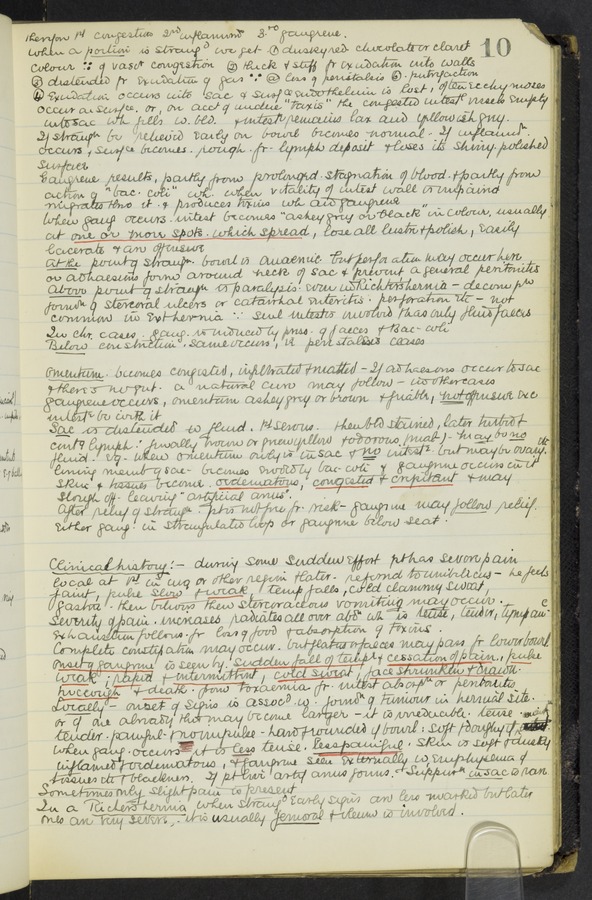 therefore 1st congestion 2nd inflammn 3rd gangrene.
10
When a portion is strangd we get ① dusky red chocolate or claret
colour ∵ of vasct congestion ② thick & stiff fr exudation into walls
③ distended fr exudation of gas ∵ @ loss of peristalsis ⑤ putrefaction
④ Exudation occurs into sac & surface endothelium is lost, often ecchymoses
occur on surface, or, on acct of undue "taxis" the congested intestl vessels empty
into sac wh fills w. bld. & intestl remains lax and yellowish grey.
If strangn be relieved early on bowel becomes normal. If inflammn
occurs, surface becomes rough fr lymph deposit & loses its shiny polished
surface
Gangrene results, partly from prolonged stagnation of blood & partly from
action of "bac. coli" wh. when vitality of intest wall is impaired
migrates thro it & produces toxins wh aid gangrene
When gang occurs intest becomes "ashey grey or black" in colour, usually
at one or more spots which spread, lose all lustre & polish, easily
lacerate & are offensive
At the point of strangn bowel is anaemic but perforation may occur here
or adhaesions form around neck of sac & prevent a general peritonitis
Above point of strangn is paralysis even in Richters hernia - decompn
formn of stercoral ulcers or catarrhal enteritis - perforation etc - not
common in Ext hernia ∵ small intestn involved & has only fluid faeces
In chr. cases gang. is induced by press. of faeces & Bac-coli
Below constriction same occurs, ie peristalsis ceases
Omentum becomes congested, infiltrated & matted - If adhaesions occur to sac
& there is no gut a natural cure may follow - in other cases
gangrene occurs, omentum ashey grey or brown & friable, not offensive exc
intestn be with it
Sac is distended w fluid, 1st serous then bld stained, later turbid &
conts lymph: finally brown or green yellow & odorous. May be no
fluid. eg. when omentum only in sac & no intestn but may be ovary etc
lining memb of sac becomes invaded by bac-coli & gangrene occurs in it
Skin & tissues become oedematous, congested & crepitant & may
slough off leaving "artificial anus".
After relief of strangn pt is not free fr risk - gangrene may follow relief
either gang: in strangulated loop or gangrene below seat.
Clinical history:- during some sudden effort pt has severe pain
local at 1st in ing or other region & later referred to umbilicus - he feels
faint, pulse slow & weak, temp falls, cold clammy sweat,
gastric then bilious then stercoraceous vomiting may occur.
Severity of pain increases, radiates all over abd wh is tense, tender, tympanc
Exhaustion follows fr loss of food & absorption of toxins.
Complete constipation may occur but flatus or faeces may pass fr lower bowel
Onset of gangrene is seen by sudden fall of temp; & cessation of pain, pulse
weak; rapid & intermittent, cold sweat, face shrunken & drawn
hiccough & death from toxaemia fr intest absorpn or peritonitis
Locally - onset of signs is associd w. formn of tumour in hernial site.
or if one already this may become larger - it is irreducible, tense
tender, painful, no impulse - hard & rounded if bowel: soft doughy if
When gang. occurs it is less tense, less painful. Skin is soft & dusky
inflamed & oedematous, & gangrene seen externally w. emphysema of
tissues etc & blackness. If pt live artif anus forms. Suppurn in sac is rare
Sometimes only slight pain is present
In a Richters hernia, when strangd early signs are less marked but later
ones are very severe, it is usually femoral & ileum is involved.